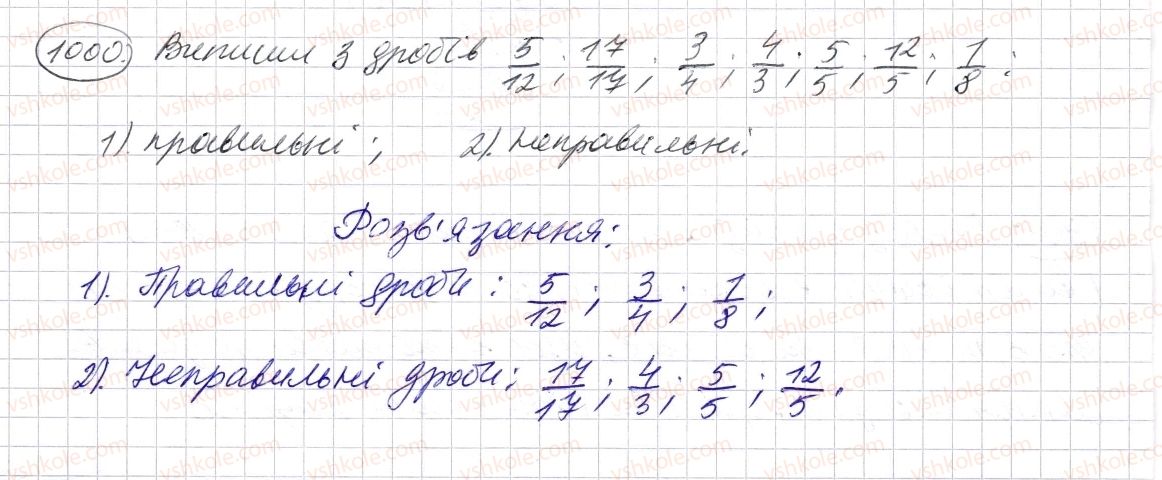 1000. Випиши з дробів 5/12; 17/17; 3/4; 4/3; 5/5; 12/5; 1/8:
1). правильні; 2). неправильні.
Розв'язання:
1). Правильні дроби: 5/12; 3/4; 1/8;
2). Неправильні дроби: 17/17; 4/3; 5/5; 12/5.